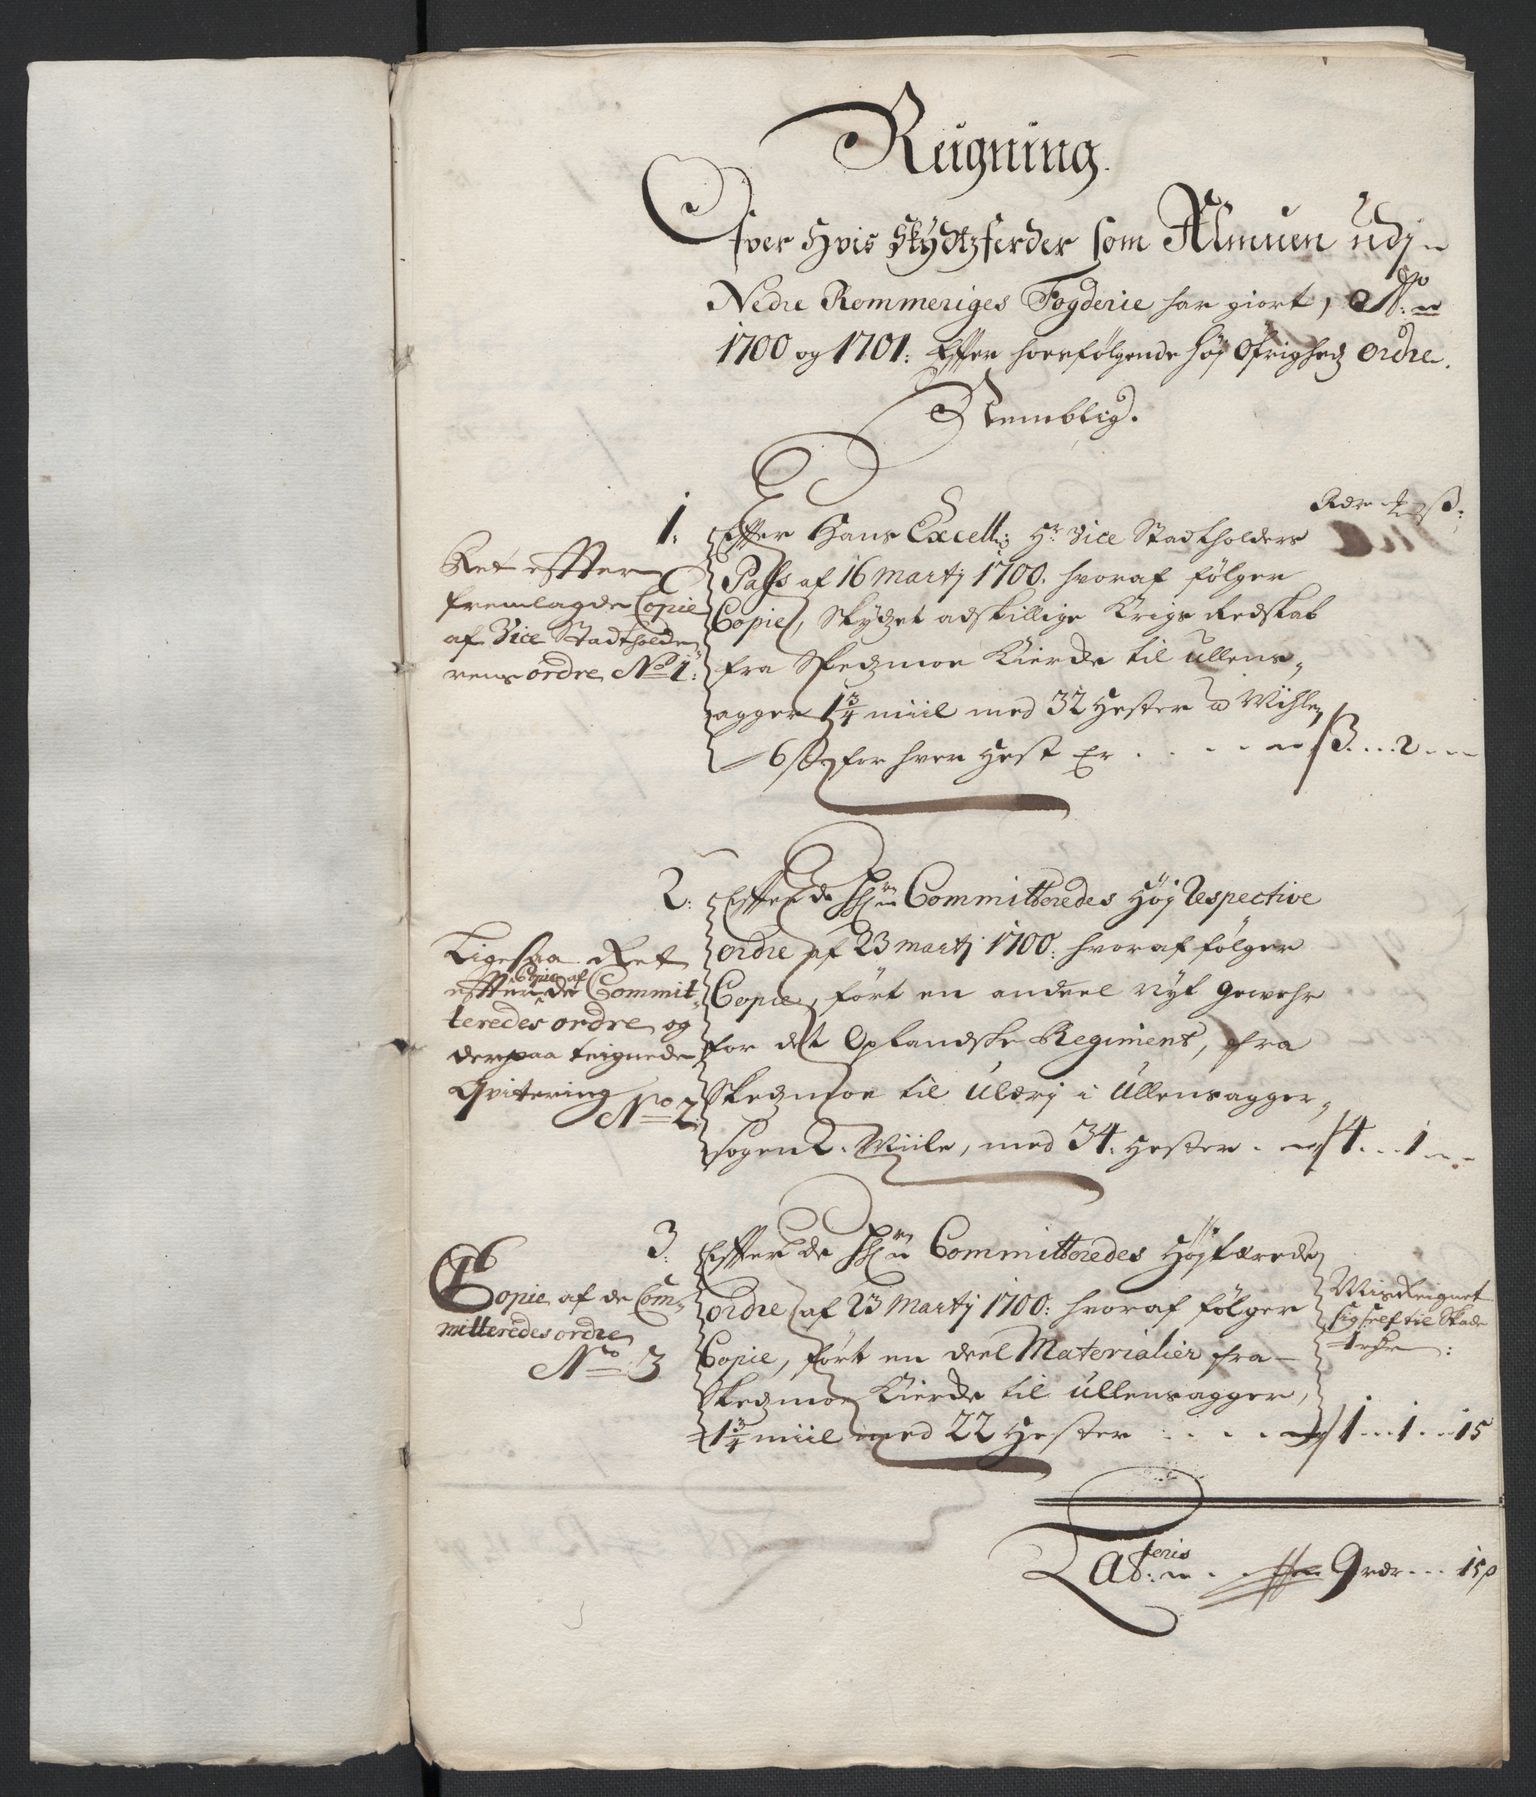 Reigning
Ofver Hvis Skydtzferder som Almuen udj
Nedre Rommeriges Fogderie har giort, Ao
1700 og 1701: Effter hoesfølgende høj Øfrighedz ordre.
Nemblig.
Rdr
1. Effter Hans Excell: Hr Vice Stadtholders
Pass af 16 Martj 1700. hvoraf følger
Copie, Skydzet adskillige Krigs Redskab
fra Skedzmoe Kierke til Ullens-
agger 1 3/4 miil med 32 Hester a Mihlen
6 s for hver Hest Er . . . . 3 . . . 2
Ret efter
fremlagde Copie
af Vice Stadtholde
rens ordre No 1:
2. Effter de Committeredes Høj Respective
ordre af 23 martj 1700: hvoraf følger
Copie, ført en andeel nyt gewehr
for det Oplandske Regiment, fra
Skedzmoe til Ulerj i Ullensagger
Sogen 2. Miile, med 34. Hester . 4 . . . 1
Ligesaa Ret
efter Copie af de Commit-
teredes ordre og
derpaa teignede
Qvitering No 2.
3. Effter de Committeredes Højtærede
ordre af 23 Martj 1700: hvoraf følger
Copie, ført en deel Materialier fra
Skedzmoe Kierke til Ullensagger,
1 3/4 miil med 22 Hester . . . . 1 . . . 1 . . 15
Copie af de Com-
mitteredes ordre
No 3
Misreignet
sig self til Skade
Lateris . . . 9 rdr . . . 15 s